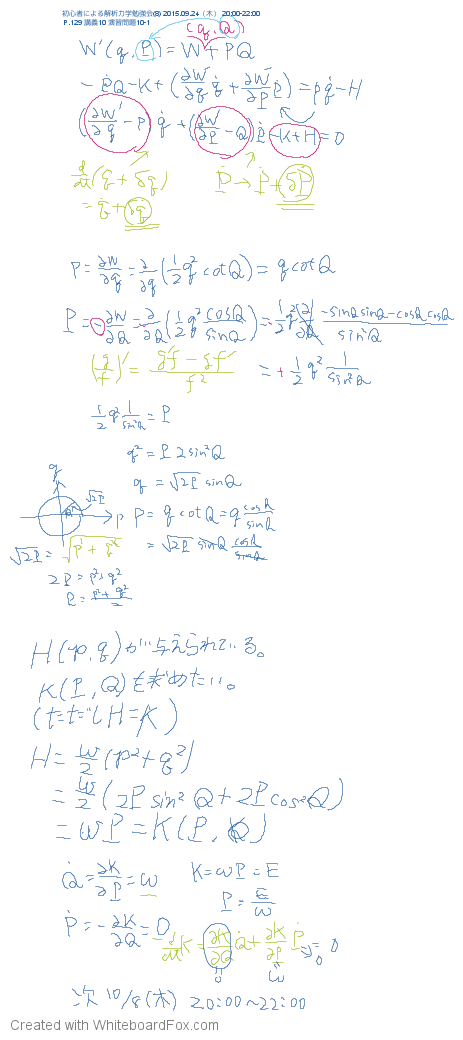 初心者による解析力学勉強会(8) 2015.09.24（木） 20:00-22:00
P.129 講義10 演習問題10-1
(q, Q)
W'(q, P) = W + PQ
-ṖQ - K + (∂W'/∂q q̇ + ∂W'/∂P Ṗ) = pq̇ - H
(∂W'/∂q - p) q̇ + (∂W'/∂P - Q) Ṗ - K + H = 0
d/dt (q + δq)
= q̇ + δq̇
Ṗ → Ṗ + δṖ
p = ∂W/∂q = ∂/∂q (1/2 q² cot Q) = q cot Q
P = -∂W/∂Q = -∂/∂Q (1/2 q² cosQ/sinQ) = -1/2 q² -sinQ sinQ - cosQ cosQ / sin²Q
(g/f)' = g'f - gf' / f²
= + 1/2 q² 1/sin²Q
1/2 q² 1/sin²Q = P
q² = P 2 sin²Q
q = √2P sinQ
q
√2P
p
p = q cot Q = q cosQ/sinQ
= √2P sinQ cosQ/sinQ
√2P = √p² + q²
2P = p² + q²
P = p² + q² / 2
H(p, q) が与えられている。
K(P, Q) を求めたい。
(ただし H = K)
H = ω/2 (p² + q²)
= ω/2 (2P sin²Q + 2P cos²Q)
= ωP = K(P, Q)
Q̇ = ∂K/∂P = ω
K = ωP = E
P = E/ω
Ṗ = -∂K/∂Q = 0
d/dt K = ∂K/∂Q Q̇ + ∂K/∂P Ṗ = 0
0
ω
0
次 10/8(木) 20:00~22:00
Created with WhiteboardFox.com